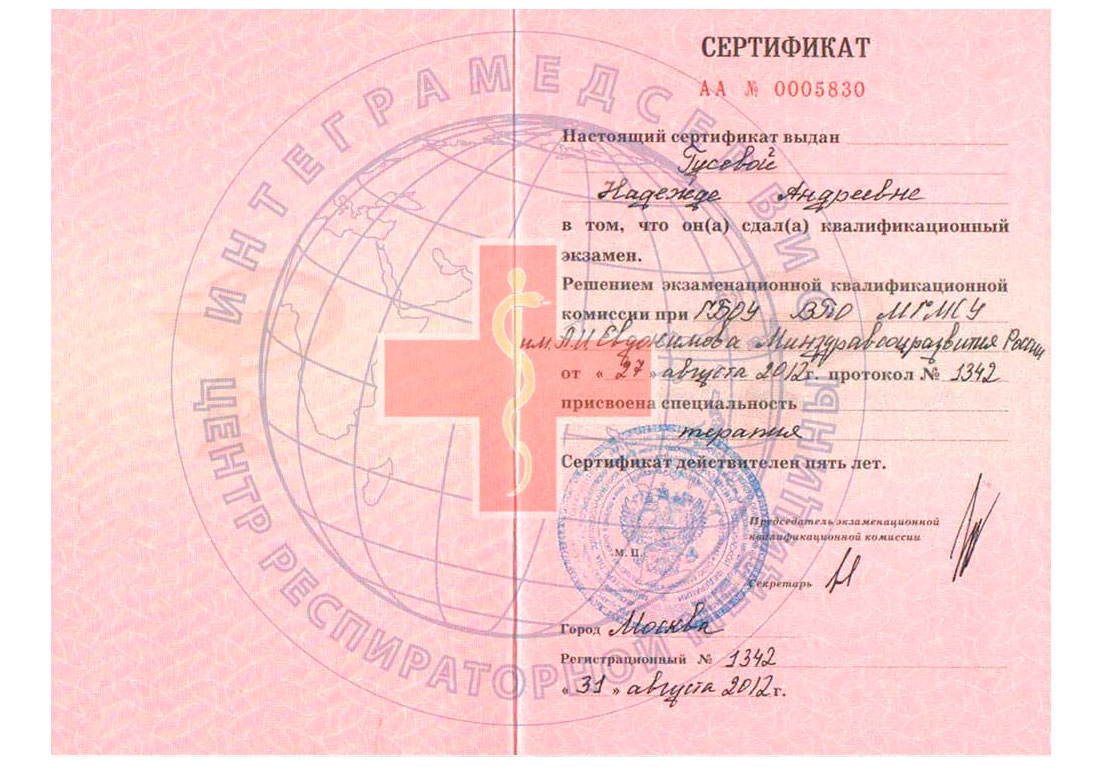 СЕРТИФИКАТ
АА № 0005830
Настоящий сертификат выдан
Гусевой
Надежде Андреевне
в том, что он(а) сдал(а) квалификационный
экзамен.
Решением экзаменационной квалификационной
комиссии при ГБОУ ВПО МГМСУ
им. А И Евдокимова Минздравсоцразвития России
от « 27 » августа 2012г. протокол № 1342
присвоена специальность
терапия
Сертификат действителен пять лет.
Председатель экзаменационной
квалификационной комиссии
М. П.
Секретарь
Город Москва
Регистрационный № 1342
« 31 » августа 2012г.
ИНТЕГРАМЕДСЕРВИС
ЦЕНТР РЕСПИРАТОРНОЙ МЕДИЦИНЫ